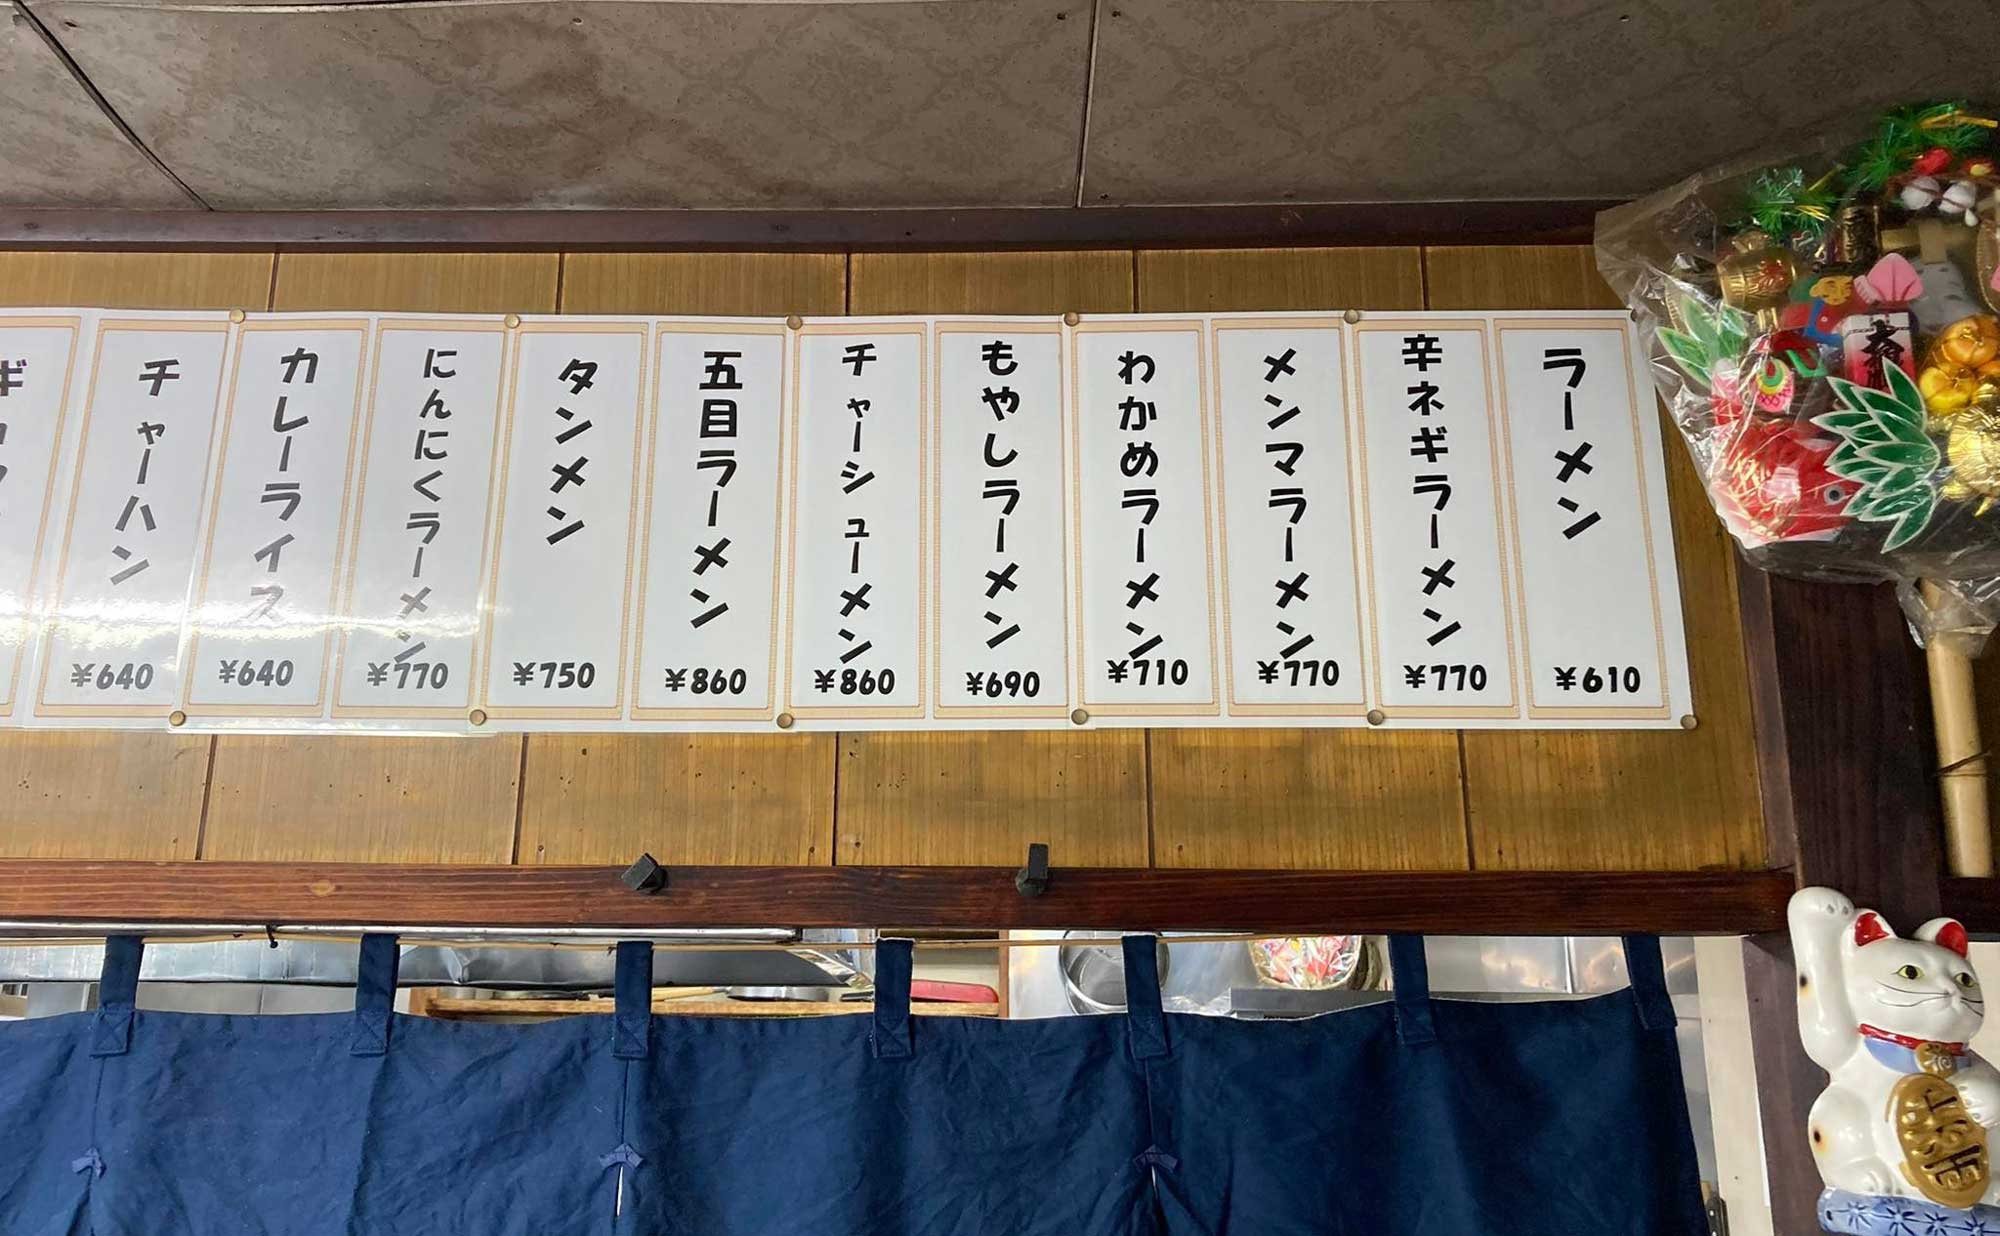 ラーメン
¥610
辛ネギラーメン
¥770
メンマラーメン
¥770
わかめラーメン
¥710
もやしラーメン
¥690
チャーシューメン
¥860
五目ラーメン
¥860
タンメン
¥750
にんにくラーメン
¥770
カレーライス
¥640
チャーハン
¥640